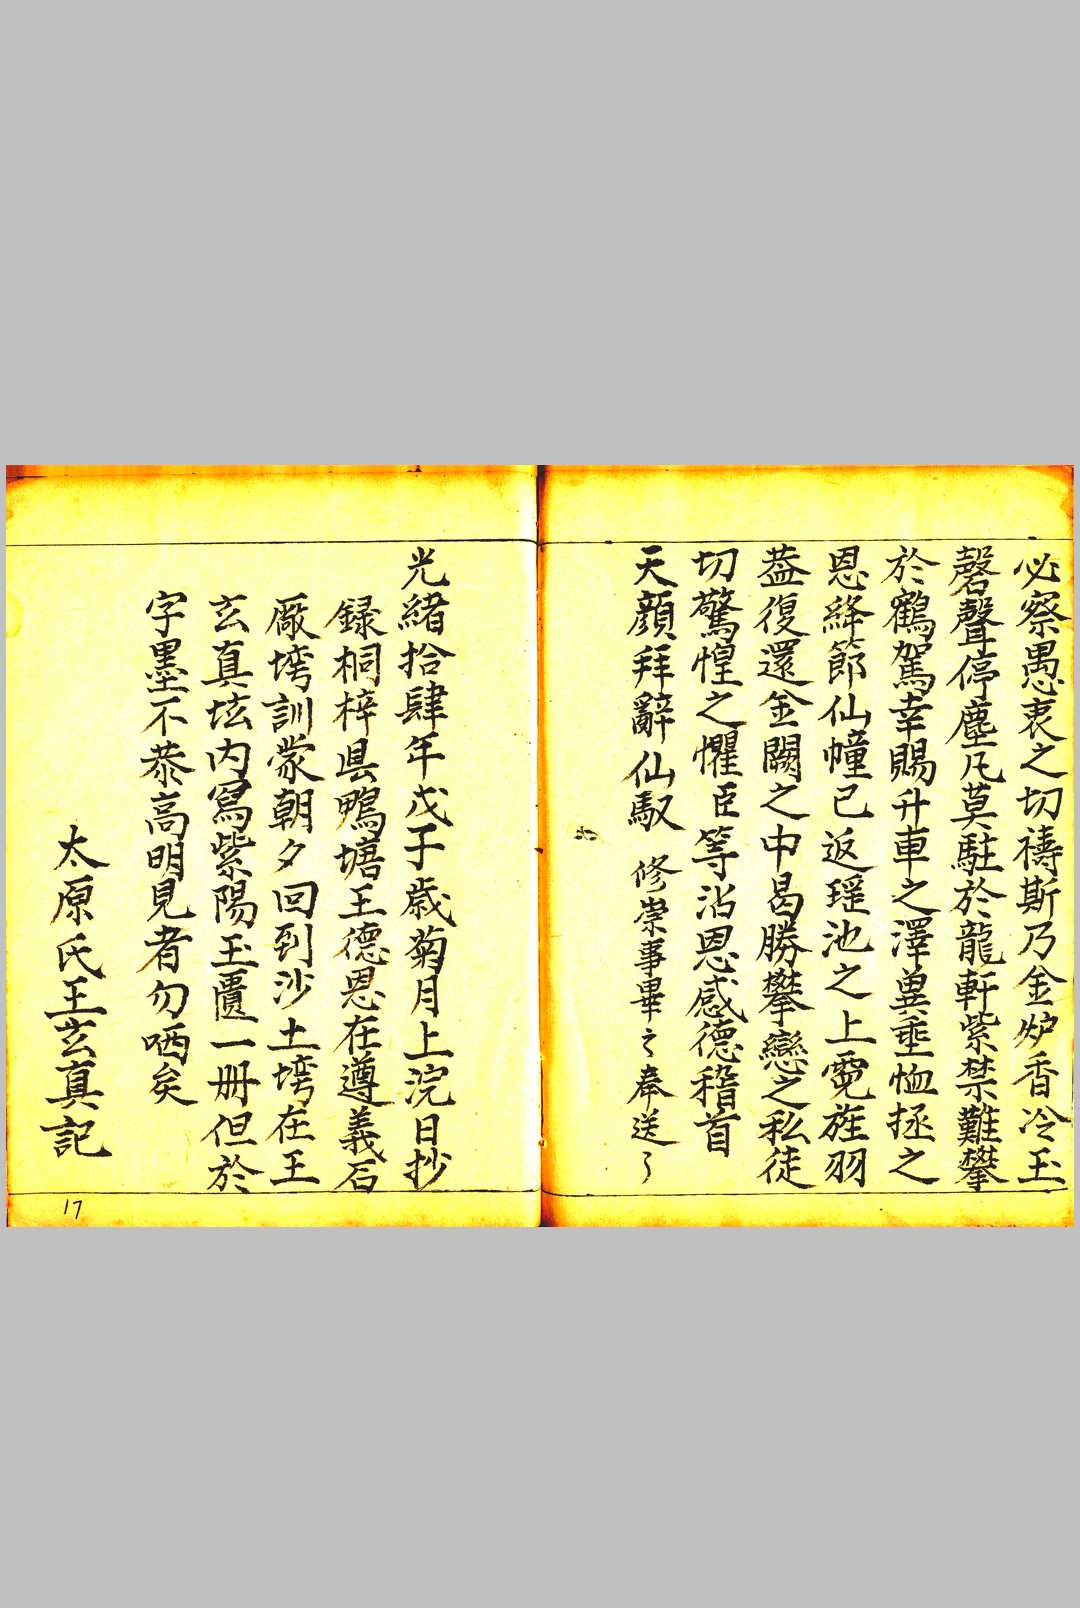 必察愚衷之切禱斯乃金炉香冷玉
磬聲停塵凡莫駐於龍軒紫禁難攀
於鶴駕幸賜升車之澤兾垂恤拯之
恩絳節仙幢已返瑶池之上霓旌羽
葢復還金闕之中曷勝攀戀之私徒
切驚惶之懼臣等沾恩感德稽首
天顔拜辭仙馭 修崇事畢之奉送了
光緒拾肆年戊子歳菊月上浣日抄
録桐梓县鴨塘王德恩在遵義石
厰塆訓蒙朝夕回到沙土塆在王
玄真坛内寫紫陽玉匱一册但於
字墨不恭高明見者勿哂矣
太原氏王玄真記
17